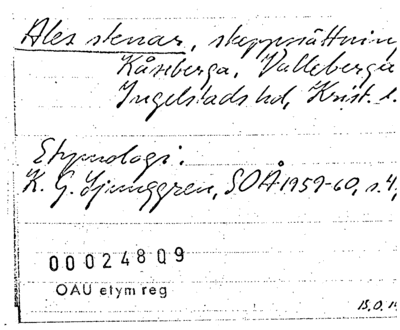 Ales stenar, skeppssättning
Kåseberga, Valleberga
Ingelstads hd, Krist. l.
Etymologi:
K. G. Ljunggren, SOÅ 1959-60, s. 4,
00024809
OAU etym reg